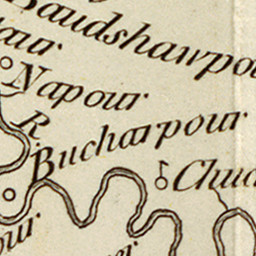 Baudshawpou
Napour
R.
Bucharpour
Chuc
our